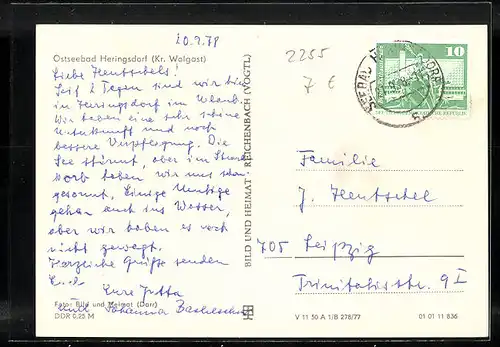 20.9.78
Ostseebad Heringsdorf (Kr. Wolgast)
Liebe Hentschels!
Seit 2 Tagen sind wir hier
in Herringsdorf im Urlaub.
Wir haben eine sehr schöne
Unterkunft und noch
bessere Verpflegung. Die
See stürmt, aber im Strand
korb haben wir uns schon
gesonnt. Einige Mutige
gehen auch ins Wasser,
aber wir haben es noch
nicht gewagt.
Herzliche Grüße senden
Eure Jutta
und Johanna
Foto: Bild und Heimat (Darr)
DDR 0,25 M
BILD UND HEIMAT REICHENBACH (VOGTL)
2255
7 €
10
Familie
J. Hentschel
705 Leipzig
Trinitatisstr. 9 I
V 11 50 A 1/B 278/77
01 01 11 836